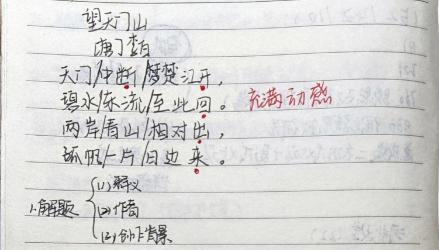 望天门山
唐 李白
天门/中断/楚江开,
碧水/东流/至此回。 充满动感
两岸/青山/相对出,
孤帆/一片/日边来。
1.解题 (1)释义
(2)作者
(3)创作背景